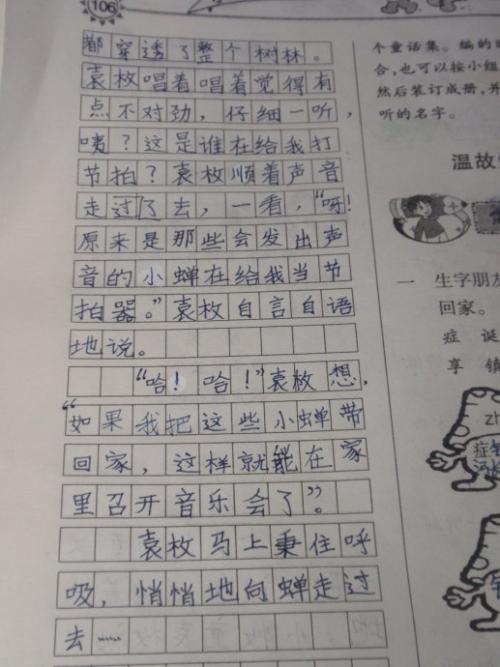 106
都穿透了整个树林。
袁枚唱着唱着觉得有
点不对劲，仔细一听，
咦？这是谁在给我打
节拍？袁枚顺着声音
走过了去，一看，“呀！
原来是那些会发出声
音的小蝉在给我当节
拍器。”袁枚自言自语
地说。
“哈！哈！”袁枚想，
“如果我把这些小蝉带
回家，这样就能在家
里召开音乐会了”。
袁枚马上秉住呼
吸，悄悄地向蝉走过
去……
个童话集。编的
合，也可以按小组
然后装订成册，并
听的名字。
温故
一 生字朋友
回家。
症 诞
享 镇
zh
症